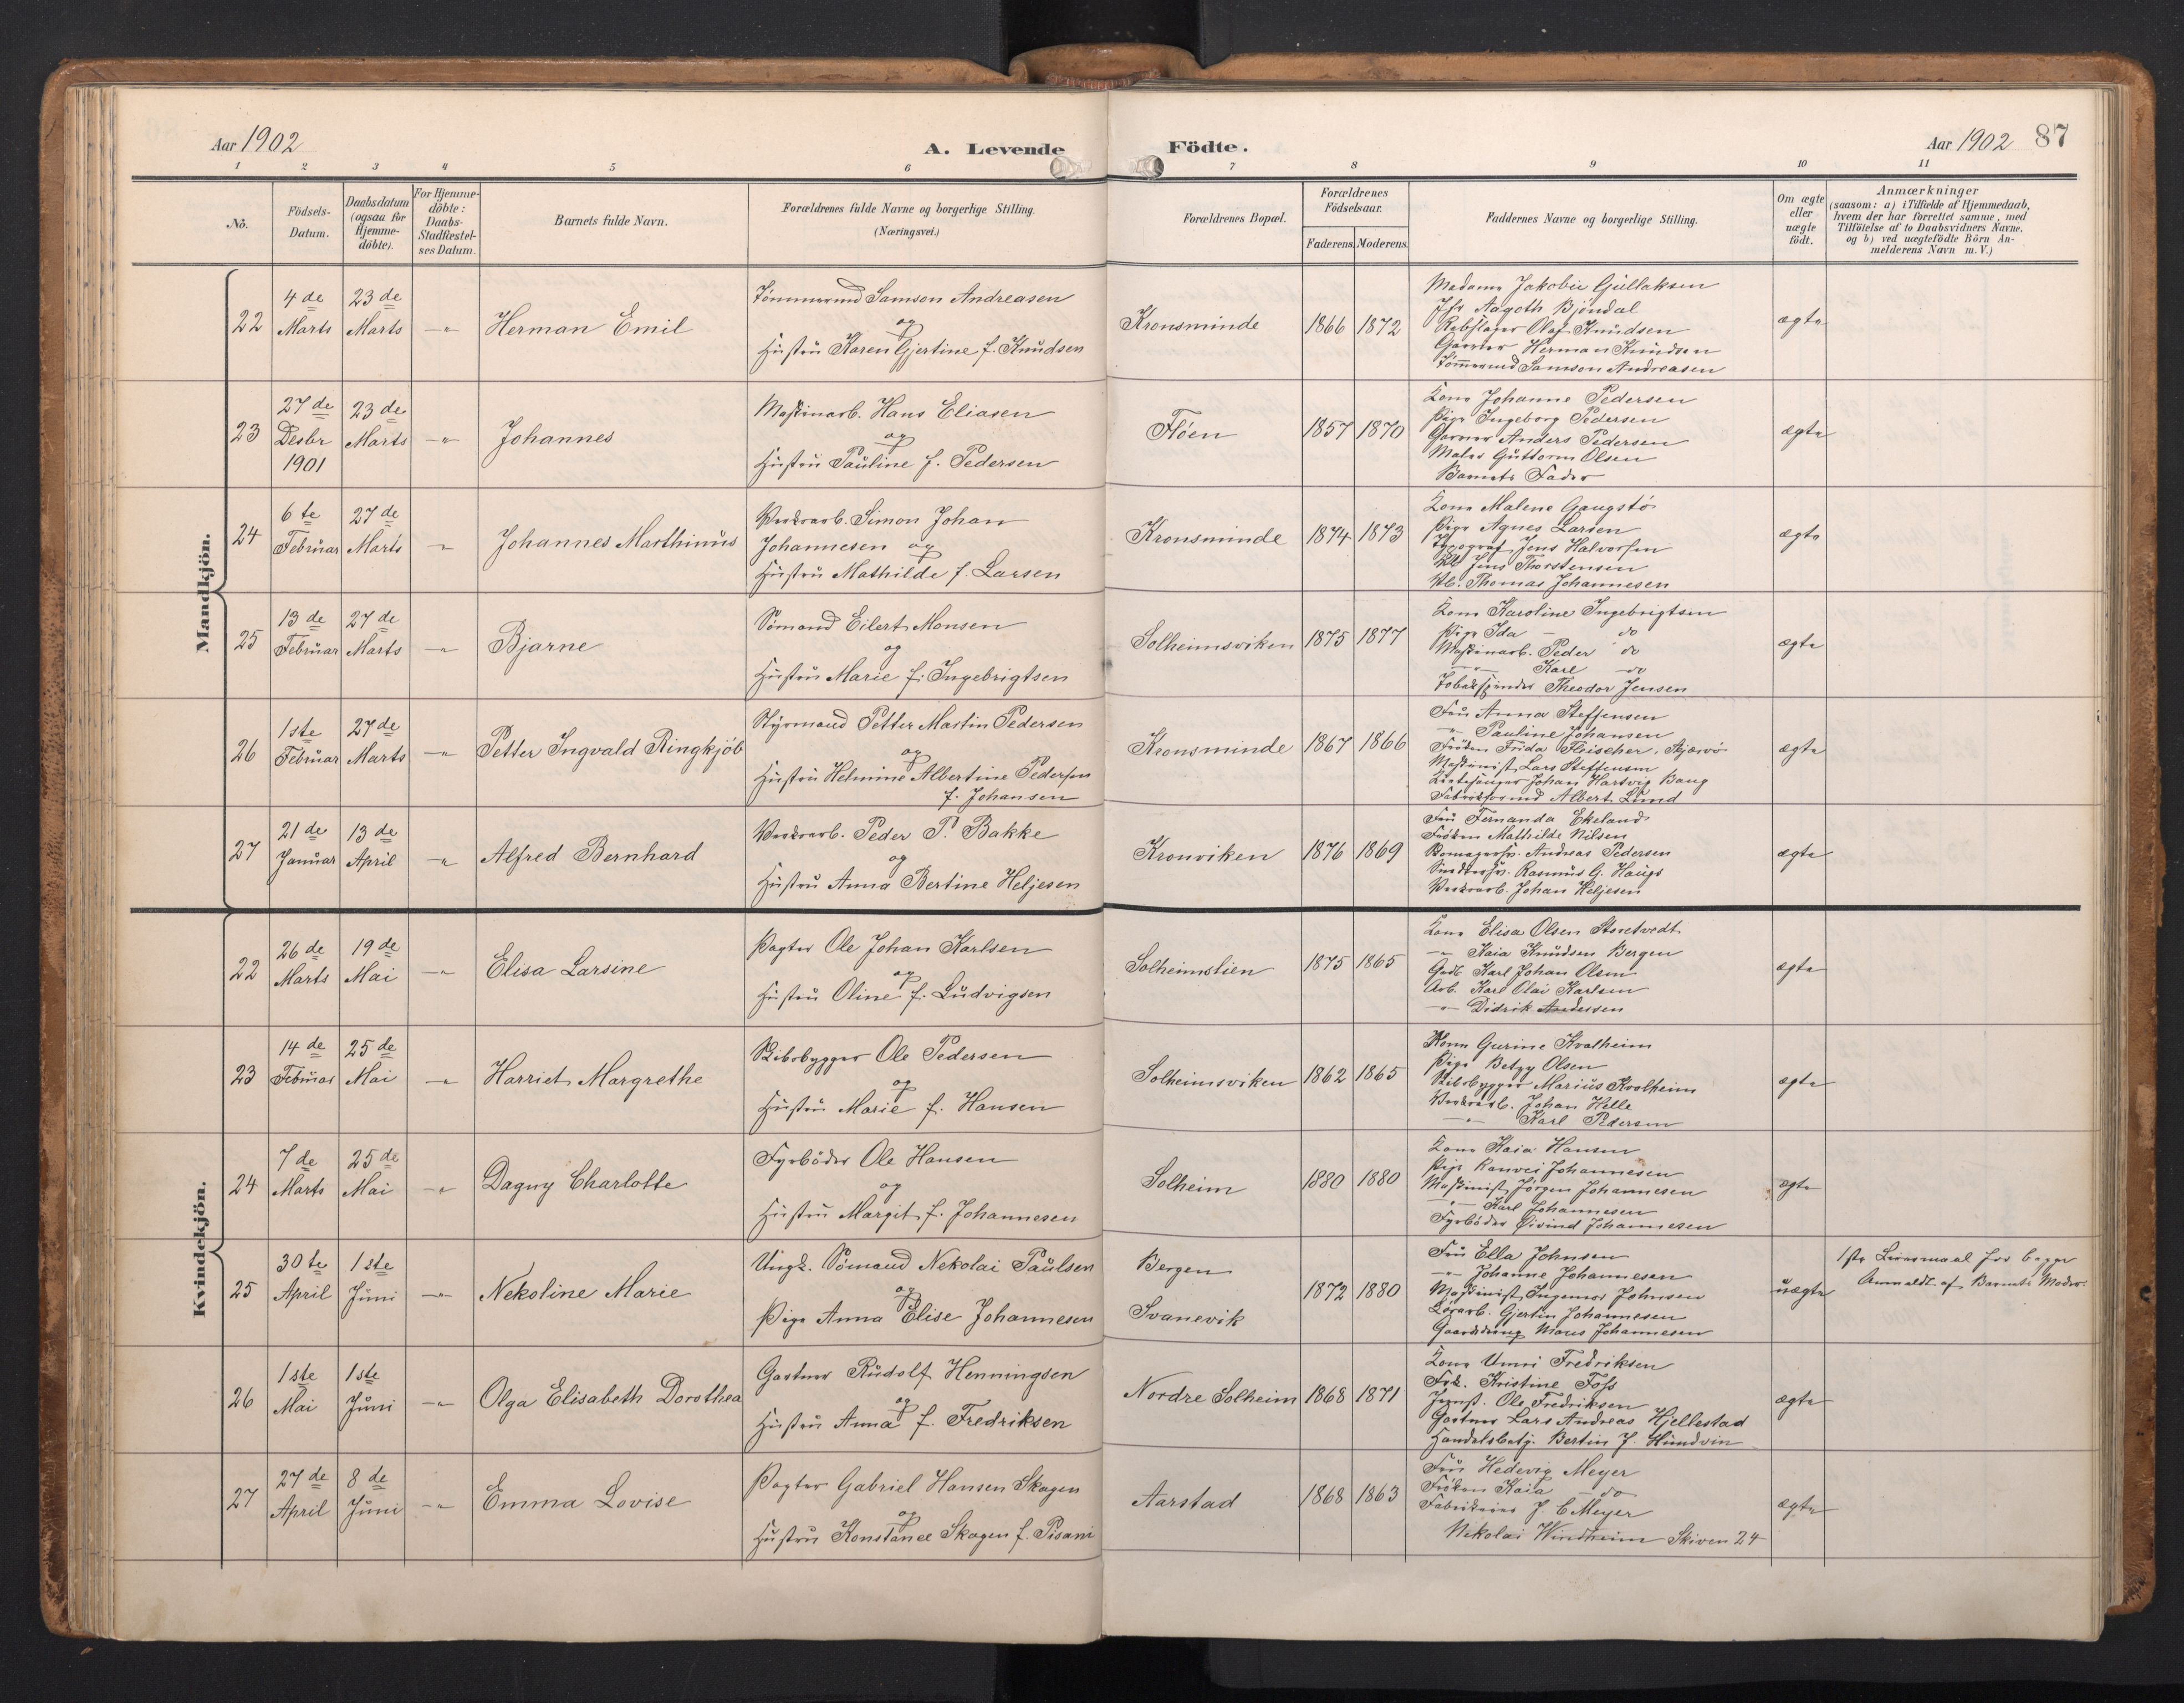 Aar 1902
A. Levende
Födte.
Aar 1902 87
1 2 3 4 5 6 7 8 9 10 11
Nô.
Födsels-
Datum.
Daabsdatum
(ogsaa for
Hjemme-
döbte).
For Hjemme-
döbte:
Daabs-
Stadfæstel-
ses Datum.
Barnets fulde Navn.
Forældrenes fulde Navne og borgerlige Stilling.
(Næringsvei.)
Forældrenes Bopæl.
Forældrenes
Födselsaar.
Faderens. Moderens.
Faddernes Navne og borgerlige Stilling.
Om ægte
eller
uægte
födt.
Anmærkninger
(saasom: a) i Tilfælde af Hjemmedaab,
hvem der har forrettet samme, med
Tilföielse af to Daabsvidners Navne.
og b) ved uægtefödte Börn An-
melderens Navn m.V.)
Mandkjön.
22
4 de
Marts
23 de
Marts
-"-
Herman Emil
Tömmermd Samson Andreasen
og
Hustru Karen Gjertine f. Knudsen
Kronsminde
1866 1872
Madame Jakobie Gullaksen
Jfr Aagoth Bjöndal
Rebslager Olaf Knudsen
Garver Herman Knudsen
Tömmermd Samson Andreasen
ægte
23
27 de
Desbr
1901
23 de
Marts
-"-
Johannes
Maskinarb. Hans Eliasen
og
Hustru Pauline f. Pedersen
Flöen
1857 1870
Kone Johanne Pedersen
Pige Ingeborg Pedersen
Garver Anders Pedersen
Maler Guttorm Olsen
Barnets Fader
ægte
24
6 te
Februar
27 de
Marts
"
Johannes Marthinus
Verksarb. Simon Johan
Johannesen og
Hustru Mathilde f. Larsen
Kronsminde
1874 1873
Kone Malene Gaugstö
Pige Agnes Larsen
Typograf Jens Halvorsen
Jens Thorstensen
Thomas Johannesen
ægte
25
13 de
Februar
27 de
Marts
-"-
Bjarne
Sömand Eilert Monsen
og
Hustru Marie f. Ingebrigtsen
Solheimsviken
1875 1877
Kone Karoline Ingebrigtsen
Pige Ida - do
Maskinarb. Peder do
-"- Karl -do
Tobakspinder Theodor Jensen
ægte
26
1ste
Februar
27 de
Marts
-"-
Petter Ingvald Ringkjöb
Styrmand Petter Martin Pedersen
og
Hustru Helmine Albertine Pedersen
f. Johansen
Kronsminde
1867 1866
Fru Anna Steffensen
-"- Pauline Johansen
Fröken Frida Fleischer, Askjærö
Maskinist Lars Steffensen
Kirkesanger Johan Hartvig Baug
Fabrikformd Albert Lund
ægte
27
21 de
Januar
13 de
April
-"-
Alfred Bernhard
Verksarb. Peder P. Bakke
og
Hustru Anna Bertine Heljesen
Kronviken
1876 1869
Fru Fernanda Ekeland
Fröken Mathilde Nilsen
Andreas Pedersen
Rasmus G. Haugs
Verksarb. Johan Heljesen
ægte
Kvindekjön.
22
26 de
Marts
19 de
Mai
-"-
Elisa Larsine
Pagter Ole Johan Karlsen
og
Hustru Oline f. Ludvigsen
Solheimslien
1875 1865
Kone Elisa Olsen Storetvedt
-"- Kaia Knudsen Bergen
Gdb. Karl Johan Olsen
Arb. Karl Olai Karlsen
-"- Didrik Andersen
ægte
23
14 de
Februar
25 de
Mai
-"-
Harriet Margrethe
Skibsbygger Ole Pedersen
og
Hustru Marie f. Hansen
Solheimsviken
1862 1865
Kone Gurine Kvalheim
Pige Betzy Olsen
Skibsbygger Marius Kvalheim
Verksarb. Johan Helle
-"- Karl Pedersen
ægte
24
7 de
Marts
25 de
Mai
-"-
Dagny Charlotte
Fyrböder Ole Hansen
og
Hustru Margit f. Johannesen
Solheim
1880 1880
Kone Kaia Hansen
Pige Ranvei Johannesen
Maskinist Jörgen Johannesen
-"- Karl Johannesen
Fyrböder Öivind Johannesen
ægte
25
30 te
April
1 ste
Juni
-"-
Nekoline Marie
Ungk. Sömand Nekolai Paulsen
og
Pige Anna Elise Johannesen
Bergen
Svanevik
1872 1880
Fru Ella Johnsen
-"- Johanne Johannesen
Maskinist Ingemar Johnsen
Gjertin Johannesen
Gaardsdreng Mons Johannesen
uægte
1ste Leiermaal for begge
Anmeldt af Barnets Moder
26
1ste
Mai
1ste
Juni
-"-
Olga Elisabeth Dorothea
Gartner Rudolf Henningsen
og
Hustru Anna f. Fredriksen
Nordre Solheim
1868 1871
Kone Unni Fredriksen
Frk. Kristine Foss
Ole Fredriksen
Gartner Lars Andreas Hjellestad
Handelsbetj. Bertin J. Hundvin
ægte
27
27 de
April
8 de
Juni
-"-
Emma Lovise
Pagter Gabriel Hansen Skagen
og
Hustru Konstance Skagen f. Pisani
Aarstad
1868 1863
Fru Hedevig Meyer
Fröken Kaia - do -
Fabrikeier J. C Meyer
Nikolai Windheim Skiven 24
ægte